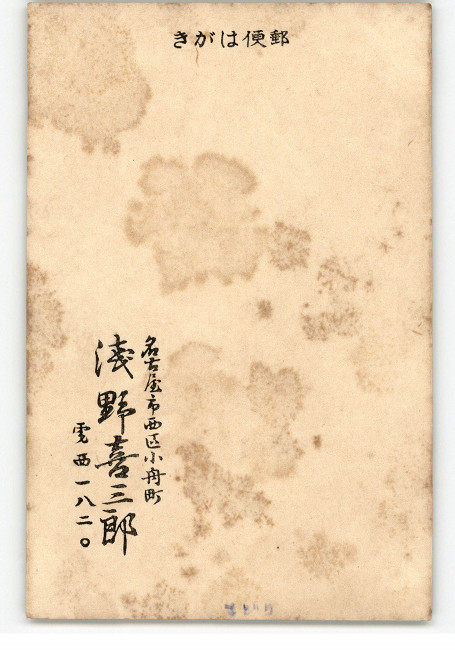 きがは便郵
名古屋市西区小舟町
浅野喜三郎
電西一八二〇